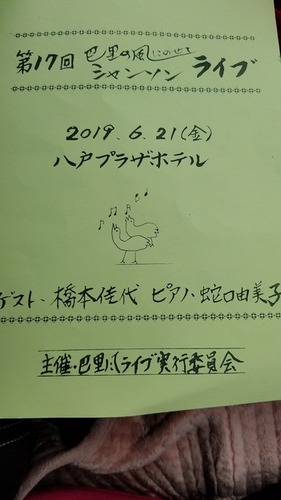 第17回 巴里の風にのせて シャンソン ライブ
2019.6.21(金)
八戸プラザホテル
ゲスト、橋本佳代 ピアノ・蛇口由美子
主催・巴里ライブ実行委員会